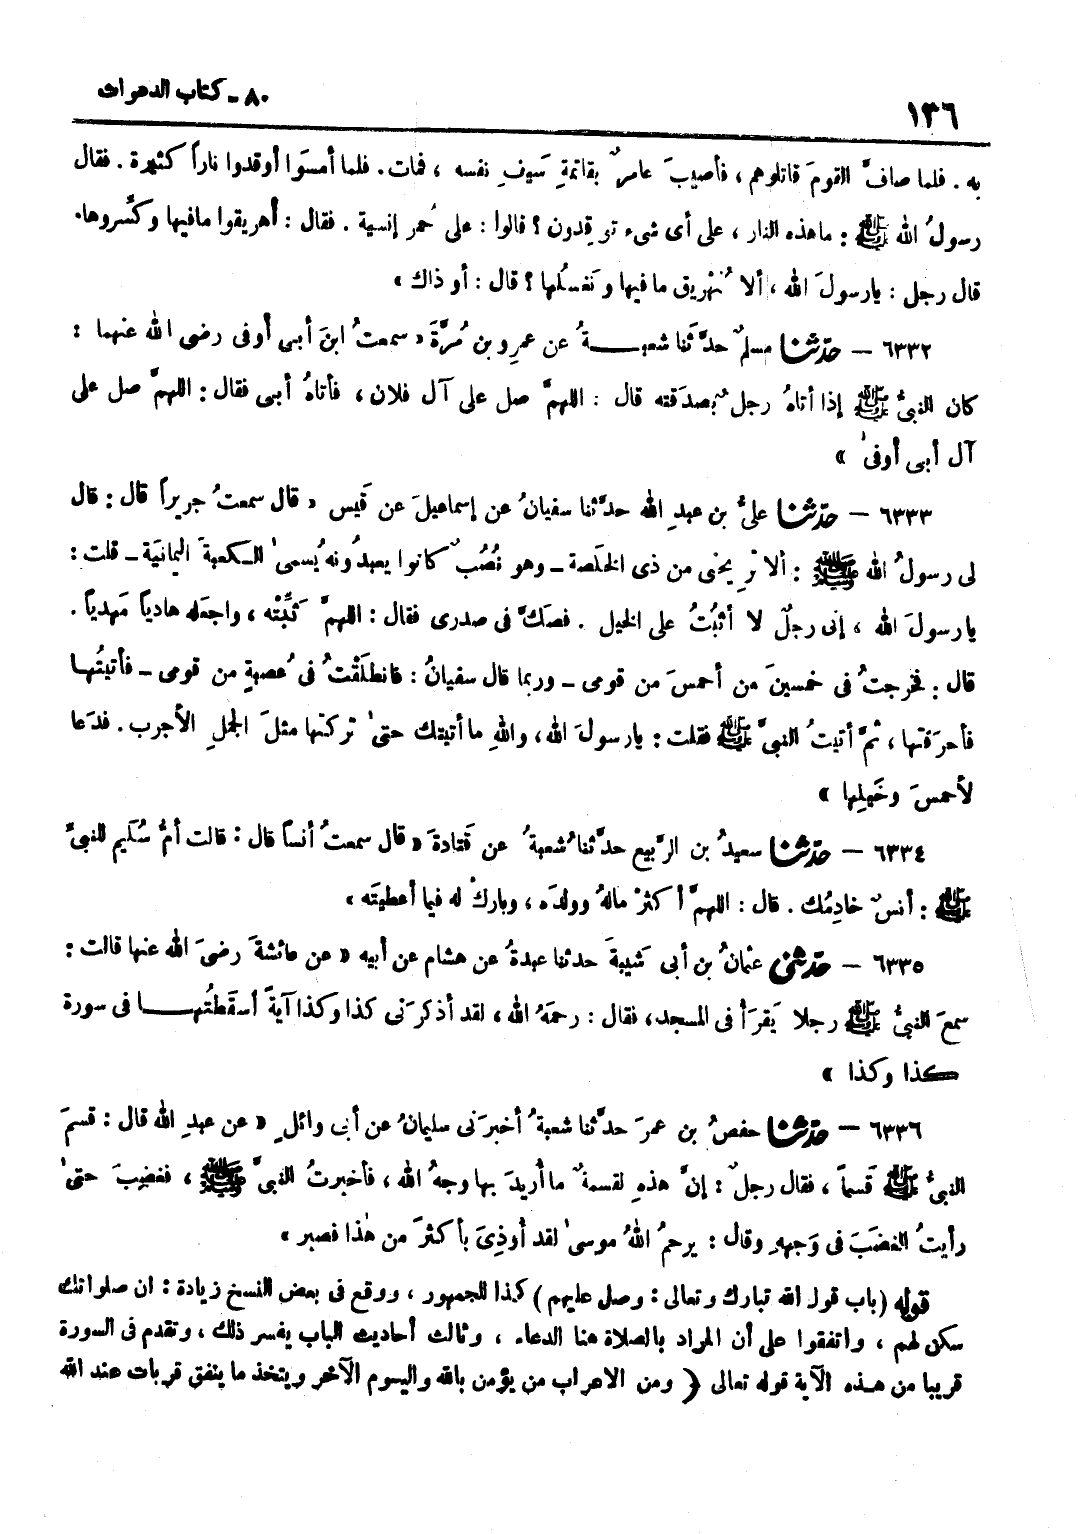 ١٣٦
٨٠ - كتاب الدعوات
به . فلما صافَّ القومَ قاتلوهم ، فأصيبَ عامرٌ بقائمةِ سَيفِ نفسه ، فمات . فلما أمسَوا أوقدوا ناراً كثيرة . فقال
رسولُ الله ﷺ : ماهذه النار ، على أى شىء توقِدون ؟ قالوا : على حُمر إنسية . فقال : أهريقوا مافيها وكسِّروها .
قال رجل : يارسولَ الله ، ألا نُهَريق ما فيها ونَغسُلها ؟ قال : أو ذاك »
٦٣٣٢ — حدّثنا مسلمٌ حدَّثَنا شعبـــةُ عن عمرِو بن مُرَّةَ « سمعتُ ابنَ أبى أوفى رضى الله عنهما :
كان النبىُّ ﷺ إذا أتاهُ رجلٌ بصدَقته قال : اللهمَّ صل على آل فلان ، فأتاهُ أبى فقال : اللهمَّ صل على
آل أبى أوفىٰ »
٦٣٣٣ — حدّثنا علىُّ بن عبدِ الله حدَّثنا سفيانُ عن إسماعيلَ عن قَيس « قال سمعتُ جريراً قال : قال
لى رسولُ الله ﷺ : ألا تُريحنى من ذى الخَلَصة ــ وهو نُصُبٌ كانوا يعبدُونه يُسمىٰ الـكعبةَ اليمانيَة ــ قلت :
يارسولَ الله ، إنى رجلٌ لا أثبُتُ على الخيل . فصكَّ فى صدرى فقال : اللهمَّ ثَبِّتْه ، واجعَله هادياً مَهدياً .
قال : فخرجتُ فى خمسينَ من أحمسَ من قومى ــ وربما قال سفيانُ : فانطلَقْتُ فى عُصبةٍ من قومى ــ فأتيتُـها
فأحرَقتها ، ثمَّ أتيتُ النبىَّ ﷺ فقلت : يارسولَ الله ، واللهِ ماأتيتك حتىٰ تركتها مثلَ الجملِ الأجرب . فدَعا
لأحمسَ وخَيلِها »
٦٣٣٤ — حدّثنا سعيدُ بن الرَّبيع حدَّثنا شعبةُ عن قَتادةَ « قال سمعتُ أنساً قال : قالت أمُّ سُلَيم للنبىِّ
ﷺ : أنسٌ خادِمُك . قال : اللهمَّ أكثرْ مالهُ وولدَه ، وباركْ له فيما أعطيتَه »
٦٣٣٥ — حدّثنى عثمانُ بن أبى شَيبةَ حدثنا عبدةُ عن هشام عن أبيه « عن عائشةَ رضىَ الله عنها قالت :
سمعَ النبىُّ ﷺ رجلا يَقرَأ فى المسجد ، فقال : رحمَهُ الله ، لقد أذكرَنى كذا وكذا آيةً أسقَطتُهـــا فى سورة
كذا وكذا »
٦٣٣٦ — حدّثنا حفصُ بن عمرَ حدَّثنا شعبةُ أخبرَنى سليمانُ عن أبى وائلٍ « عن عبدِ الله قال : قسمَ
النبىُّ ﷺ قَسماً ، فقال رجلٌ : إنَّ هذهِ لقسمةٌ ما أُريدَ بها وجهُ الله ، فأخبرتُ النبىَّ ﷺ ، فغضِبَ حتىٰ
رأيتُ الغضَبَ فى وَجههِ وقال : يرحمُ اللهُ موسىٰ لقد أُوذِىَ بأكثرَ من هٰذا فصبر »
قوله ( باب قول الله تبارك وتعالى : وصل عليهم ) كذا للجمهور ، ووقع فى بعض النسخ زيادة : ان صلواتك
سكن لهم ، واتفقوا على أن المراد بالصلاة هنا الدعاء ، وثالث أحاديث الباب يفسر ذلك ، وتقدم فى السورة
قريبا من هــذه الآية قوله تعالى ﴿ ومن الاعراب من يؤمن بالله واليوم الآخر ويتخذ ما ينفق قربات عند الله